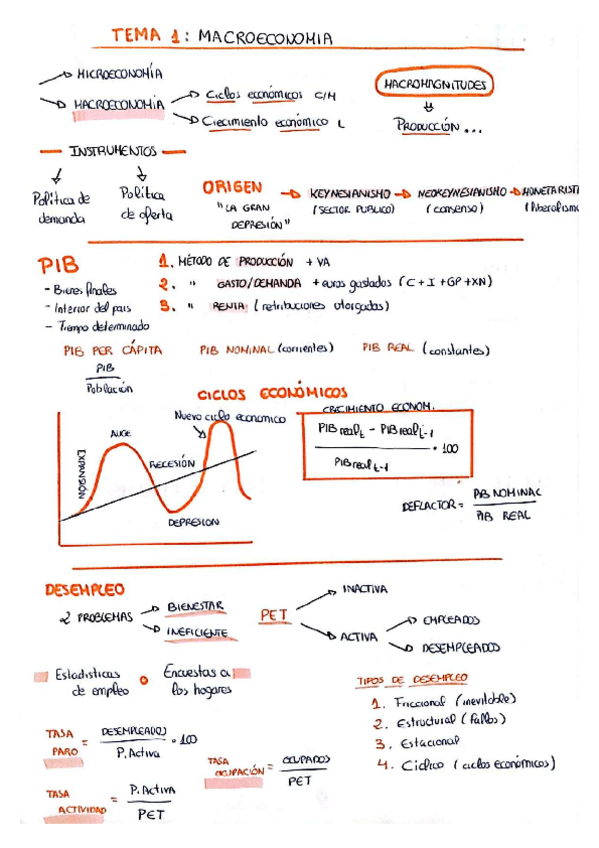 TEMA 1: MACROECONOMIA
MICROECONOMÍA
MACROECONOMÍA
Ciclos económicos C/M
Crecimiento económico L
MACROMAGNITUDES
PRODUCCIÓN ...
INSTRUMENTOS
Política de demanda
Política de oferta
ORIGEN
"LA GRAN DEPRESIÓN"
KEYNESIANISMO
(SECTOR PUBLICO)
NEOKEYNESIANISMO
(consenso)
MONETARIST
(liberalismo
PIB
- Bienes finales
- Interior del país
- Tiempo determinado
1. MÉTODO DE PRODUCCIÓN + VA
2. " GASTO/DEMANDA + euros gastados (C + I + GP + XN)
3. " RENTA (retribuciones otorgadas)
PIB PER CÁPITA
PIB
Población
PIB NOMINAL (corrientes)
PIB REAL (constantes)
CICLOS ECONÓMICOS
Nuevo ciclo economico
AUGE
EXPANSIÓN
RECESIÓN
DEPRESION
CRECIMIENTO ECONOM.
PIB real t - PIB real t-1
PIB real t-1
· 100
DEFLACTOR =
PIB NOMINAL
PIB REAL
DESEMPLEO
2 PROBLEMAS
BIENESTAR
INEFICIENTE
PET
INACTIVA
ACTIVA
EMPLEADOS
DESEMPLEADOS
Estadísticas de empleo
o
Encuestas a los hogares
TIPOS DE DESEMPLEO
1. Friccional (inevitable)
2. Estructural (fallos)
3. Estacional
4. Cíclico (ciclos económicos)
TASA PARO =
DESEMPLEADOS
P. Activa
· 100
TASA OCUPACIÓN =
OCUPADOS
PET
TASA ACTIVIDAD =
P. Activa
PET